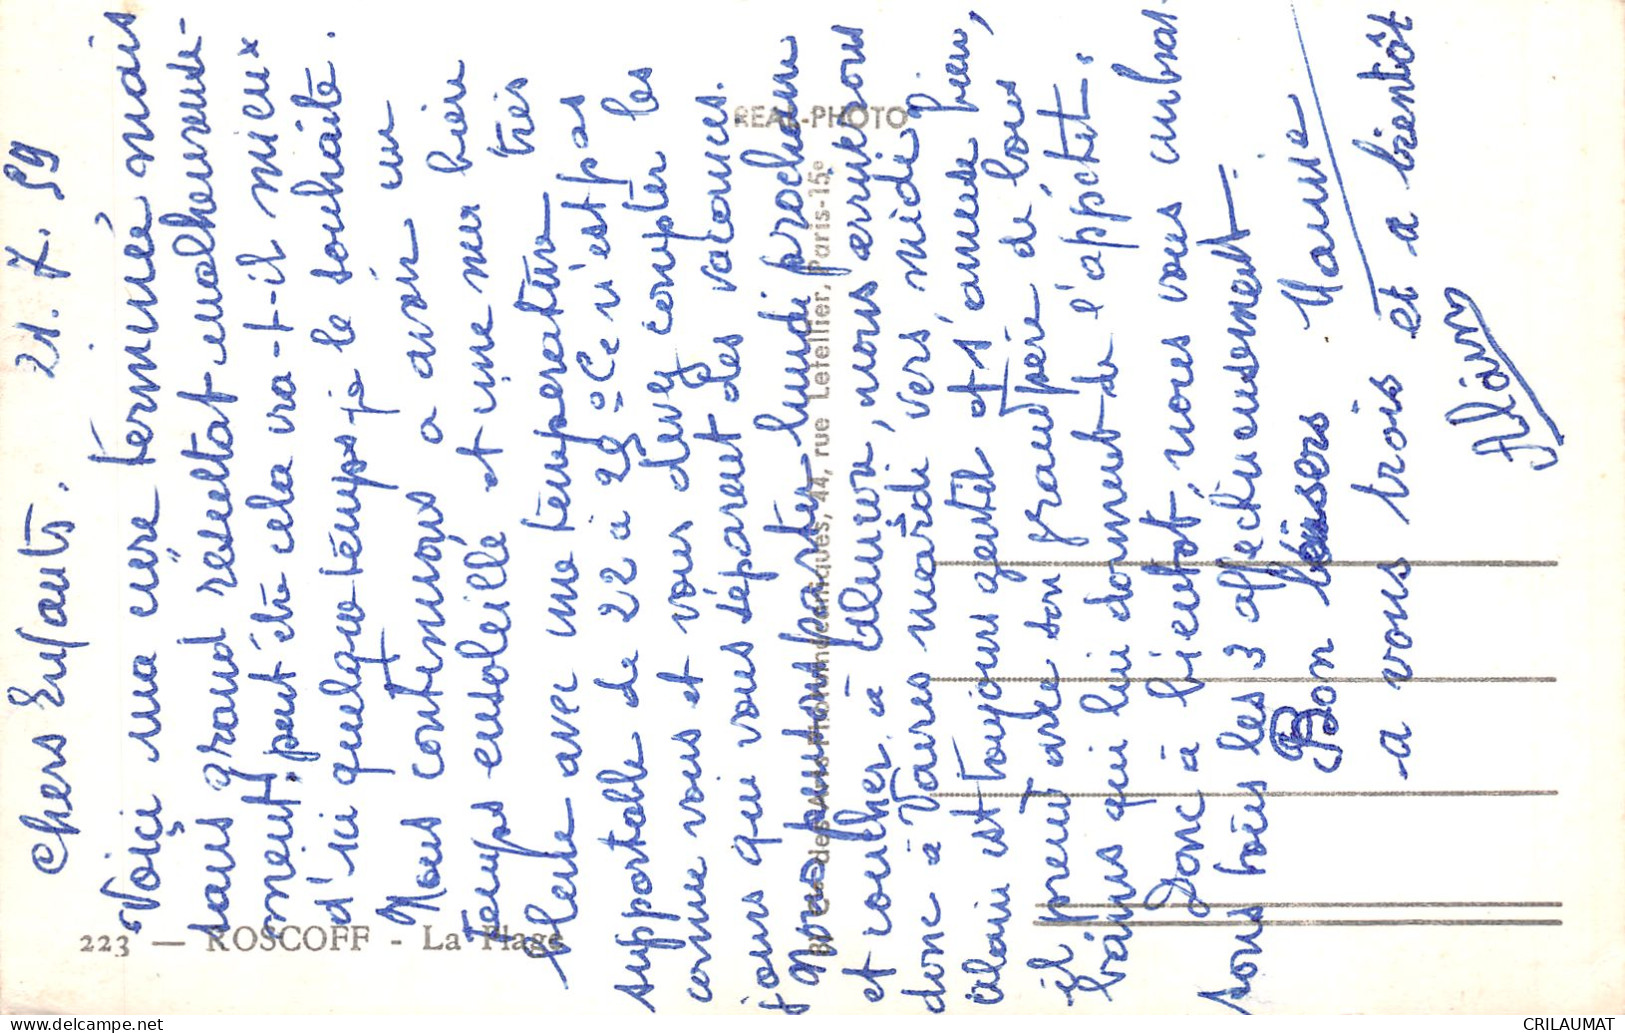 Chers Enfants. 21.7.59
Voiçi ma cure terminée mais
sans grand resultat malheureuse-
ment, peut être cela vra-t-il mieux
d'ici quelque temps je le souhaite.
Nous continuons a avoir un
temps ensoleillé et une mer bien
bleue avec une temperature très
supportable de 22 à 29° Ce n'est pas
comme vous et vous devez compter les
jours qui vous séparent des vacances.
Nous pensons partir lundi prochain
et coucher à, nous arriverons
donc à Vaires mardi vers midi
Alain est toujours gentil et s'amuse bien,
il prend avec son grand père de bons
bains qui lui donnent de l'appétit.
Donc à bientôt, nous vous embras-
sons tous les 3 affectueusement.
Mamie
Bon baisers
a vous trois et a bientôt
Alain
223 — ROSCOFF - La Plage
REAL-PHOTO
44, rue Letellier, Paris-15e
CRILAUMAT